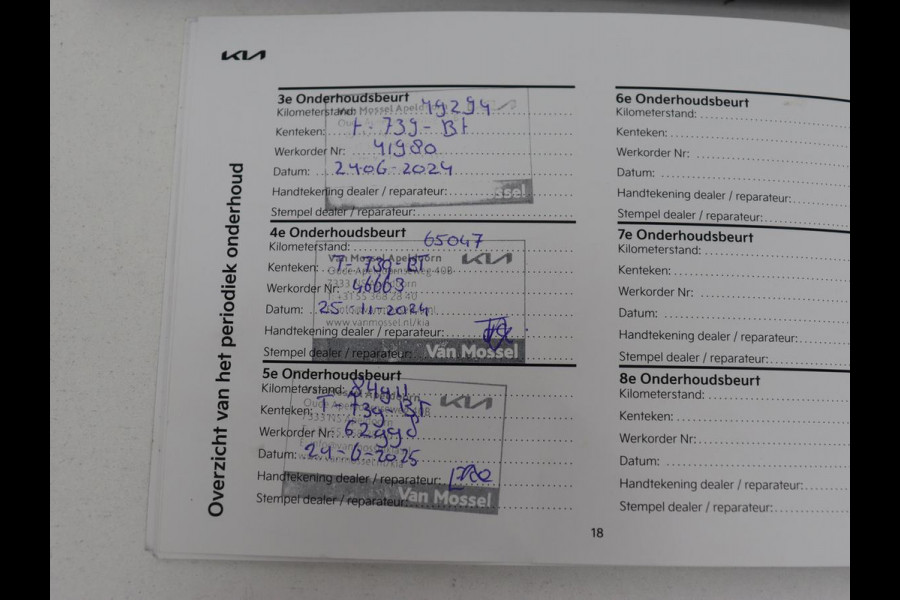 KIA
Overzicht van het periodiek onderhoud
3e Onderhoudsbeurt
Kilometerstand: 49294
Kenteken: T-739-BT
Werkorder Nr: 41980
Datum: 24-06-2024
Handtekening dealer / reparateur:
Stempel dealer / reparateur:
4e Onderhoudsbeurt
Kilometerstand: 65047
Van Mossel Apeldoorn
KIA
Kenteken: T-739-BT
Werkorder Nr: 46663
Datum: 25-11-2024
www.vanmossel.nl/kia
Handtekening dealer / reparateur:
Stempel dealer / reparateur:
Van Mossel
5e Onderhoudsbeurt
Kilometerstand: 84911
KIA
Kenteken: T-739-BT
Werkorder Nr: 62998
Datum: 24-6-2025
Handtekening dealer / reparateur:
Stempel dealer / reparateur:
Van Mossel
6e Onderhoudsbeurt
Kilometerstand:
Kenteken:
Werkorder Nr:
Datum:
Handtekening dealer / reparateur:
Stempel dealer / reparateur:
7e Onderhoudsbeurt
Kilometerstand:
Kenteken:
Werkorder Nr:
Datum:
Handtekening dealer / reparateur:
Stempel dealer / reparateur:
8e Onderhoudsbeurt
Kilometerstand:
Kenteken:
Werkorder Nr:
Datum:
Handtekening dealer / reparateur:
Stempel dealer / reparateur:
18